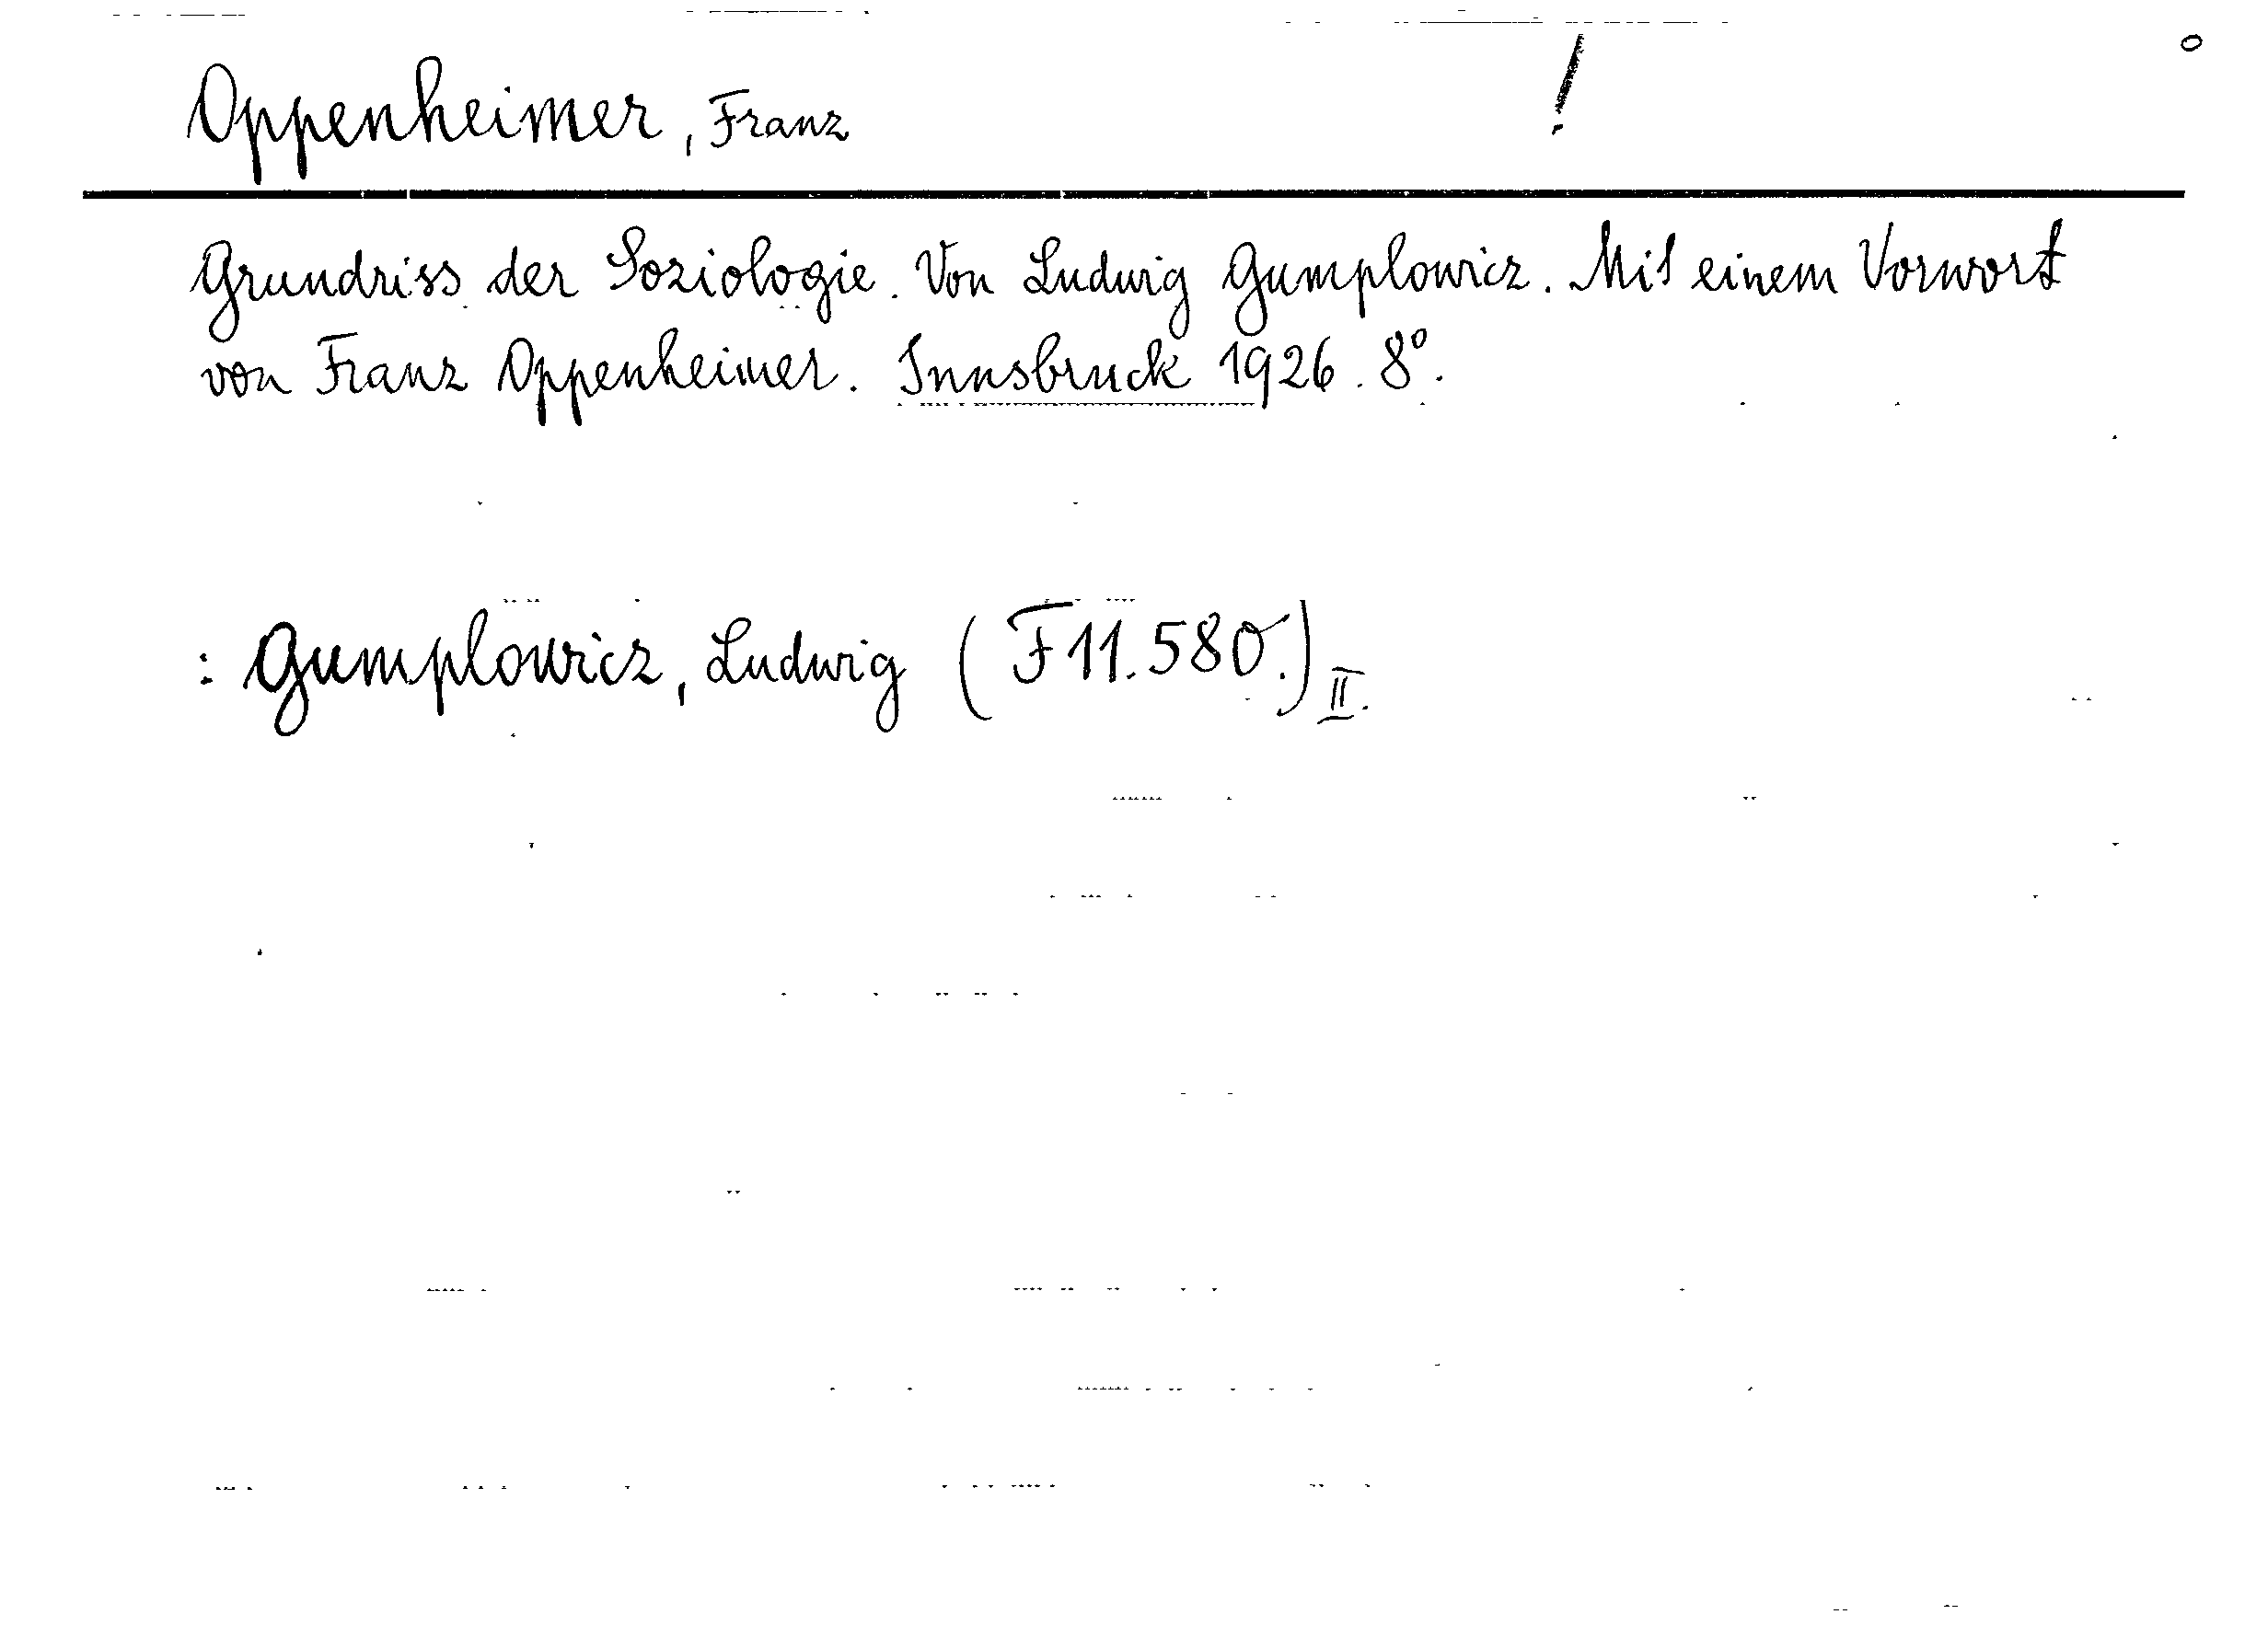 Oppenheimer, Franz !
Grundriss der Soziologie. Von Ludwig Gumplowicz. Mit einem Vorwort
von Franz Oppenheimer. Innsbruck 1926. 8°.
: Gumplowicz, Ludwig (F 11.580.) II.